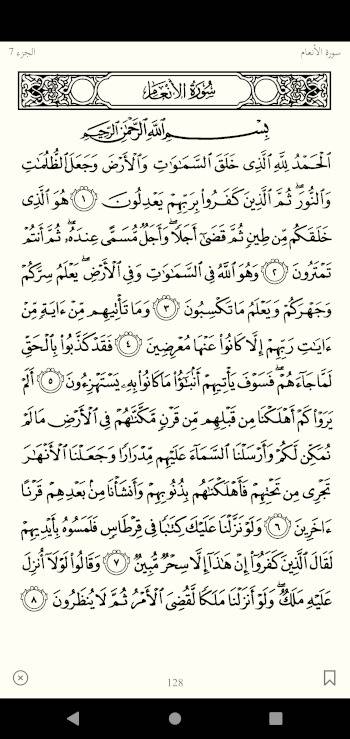 سورة الأنعام
الجزء 7
سُورَةُ الأَنْعَامِ
بِسْمِ اللَّهِ الرَّحْمَٰنِ الرَّحِيمِ
الْحَمْدُ لِلَّهِ الَّذِي خَلَقَ السَّمَاوَاتِ وَالْأَرْضَ وَجَعَلَ الظُّلُمَاتِ
وَالنُّورَ ۖ ثُمَّ الَّذِينَ كَفَرُوا بِرَبِّهِمْ يَعْدِلُونَ ١ هُوَ الَّذِي
خَلَقَكُم مِّن طِينٍ ثُمَّ قَضَىٰ أَجَلًا ۖ وَأَجَلٌ مُّسَمًّى عِندَهُ ۖ ثُمَّ أَنتُمْ
تَمْتَرُونَ ٢ وَهُوَ اللَّهُ فِي السَّمَاوَاتِ وَفِي الْأَرْضِ ۖ يَعْلَمُ سِرَّكُمْ
وَجَهْرَكُمْ وَيَعْلَمُ مَا تَكْسِبُونَ ٣ وَمَا تَأْتِيهِم مِّنْ ءَايَةٍ مِّنْ
ءَايَاتِ رَبِّهِمْ إِلَّا كَانُوا عَنْهَا مُعْرِضِينَ ٤ فَقَدْ كَذَّبُوا بِالْحَقِّ
لَمَّا جَاءَهُمْ ۖ فَسَوْفَ يَأْتِيهِمْ أَنبَٰٓؤُا مَا كَانُوا بِهِ يَسْتَهْزِءُونَ ٥ أَلَمْ
يَرَوْا كَمْ أَهْلَكْنَا مِن قَبْلِهِم مِّن قَرْنٍ مَّكَّنَّاهُمْ فِي الْأَرْضِ مَا لَمْ
نُمَكِّن لَّكُمْ وَأَرْسَلْنَا السَّمَاءَ عَلَيْهِم مِّدْرَارًا وَجَعَلْنَا الْأَنْهَارَ
تَجْرِي مِن تَحْتِهِمْ فَأَهْلَكْنَاهُم بِذُنُوبِهِمْ وَأَنشَأْنَا مِن بَعْدِهِمْ قَرْنًا
ءَاخَرِينَ ٦ وَلَوْ نَزَّلْنَا عَلَيْكَ كِتَابًا فِي قِرْطَاسٍ فَلَمَسُوهُ بِأَيْدِيهِمْ
لَقَالَ الَّذِينَ كَفَرُوا إِنْ هَٰذَا إِلَّا سِحْرٌ مُّبِينٌ ٧ وَقَالُوا لَوْلَا أُنزِلَ
عَلَيْهِ مَلَكٌ ۖ وَلَوْ أَنزَلْنَا مَلَكًا لَّقُضِيَ الْأَمْرُ ثُمَّ لَا يُنظَرُونَ ٨
128